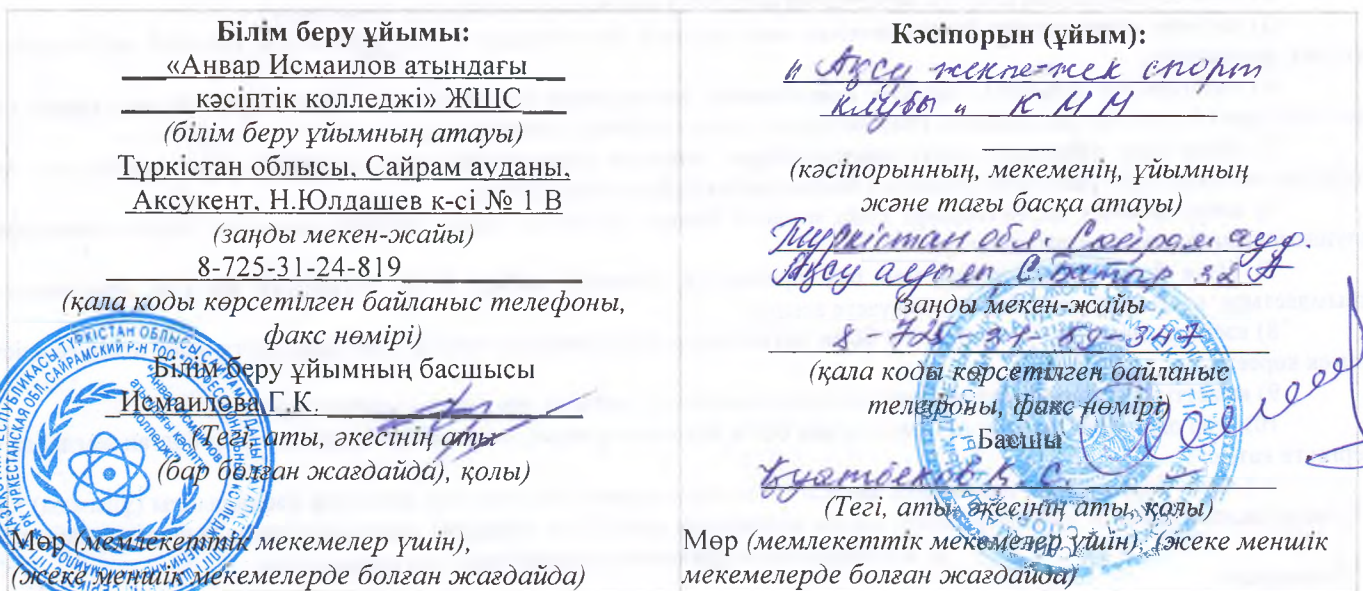 Білім беру ұйымы:
«Анвар Исмаилов атындағы
кәсіптік колледжі» ЖШС
(білім беру ұйымның атауы)
Түркістан облысы, Сайрам ауданы,
Аксукент, Н.Юлдашев к-сі № 1 В
(заңды мекен-жайы)
8-725-31-24-819
(қала коды көрсетілген байланыс телефоны,
факс нөмірі)
Білім беру ұйымның басшысы
Исмаилова Г.К.
(Тегі, аты, әкесінің аты
(бар болған жағдайда), қолы)
Мөр (мемлекеттік мекемелер үшін),
(жеке меншік мекемелерде болған жағдайда)
Кәсіпорын (ұйым):
"Ақсу жекпе-жек спорт
клубы" КММ
(кәсіпорынның, мекеменің, ұйымның
және тағы басқа атауы)
Түркістан обл. Сайрам ауд.
Ақсу ауылы, С.Батыр 32 А
заңды мекен-жайы
8-725-31-
(қала коды көрсетілген байланыс
телефоны, факс нөмірі)
Басшы
Қуатбеков Қ.С.
(Тегі, аты, әкесінің аты, қолы)
Мөр (мемлекеттік мекемелер үшін), (жеке меншік
мекемелерде болған жағдайда)